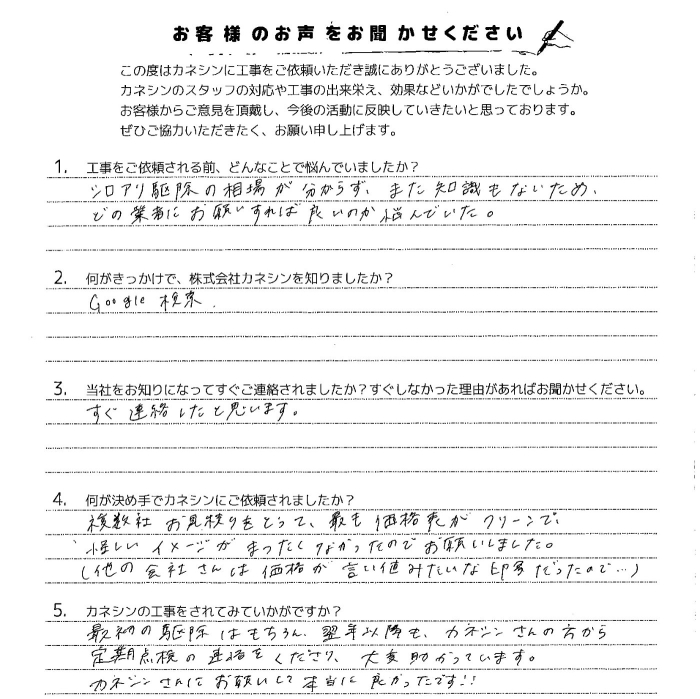 お客様のお声をお聞かせください
この度はカネシンに工事をご依頼いただき誠にありがとうございました。
カネシンのスタッフの対応や工事の出来栄え、効果などいかがでしたでしょうか。
お客様からご意見を頂戴し、今後の活動に反映していきたいと思っております。
ぜひご協力いただきたく、お願い申し上げます。
1. 工事をご依頼される前、どんなことで悩んでいましたか？
シロアリ駆除の相場が分からず、また知識もないため、
どの業者にお願いすれば良いのか悩んでいた。
2. 何がきっかけで、株式会社カネシンを知りましたか？
Google 検索.
3. 当社をお知りになってすぐご連絡されましたか？すぐしなかった理由があればお聞かせください。
すぐ連絡したと思います。
4. 何が決め手でカネシンにご依頼されましたか？
複数社お見積りをとって、最も価格表がクリーンで、
怪しいイメージがまったくなかったのでお願いしました。
(他の会社さんは価格が言い値みたいな印象だったので…)
5. カネシンの工事をされてみていかがですか？
最初の駆除はもちろん、翌年以降も、カネシンさんの方から
定期点検の連絡をくださり、大変助かっています。
カネシンさんにお願いして本当に良かったです!!